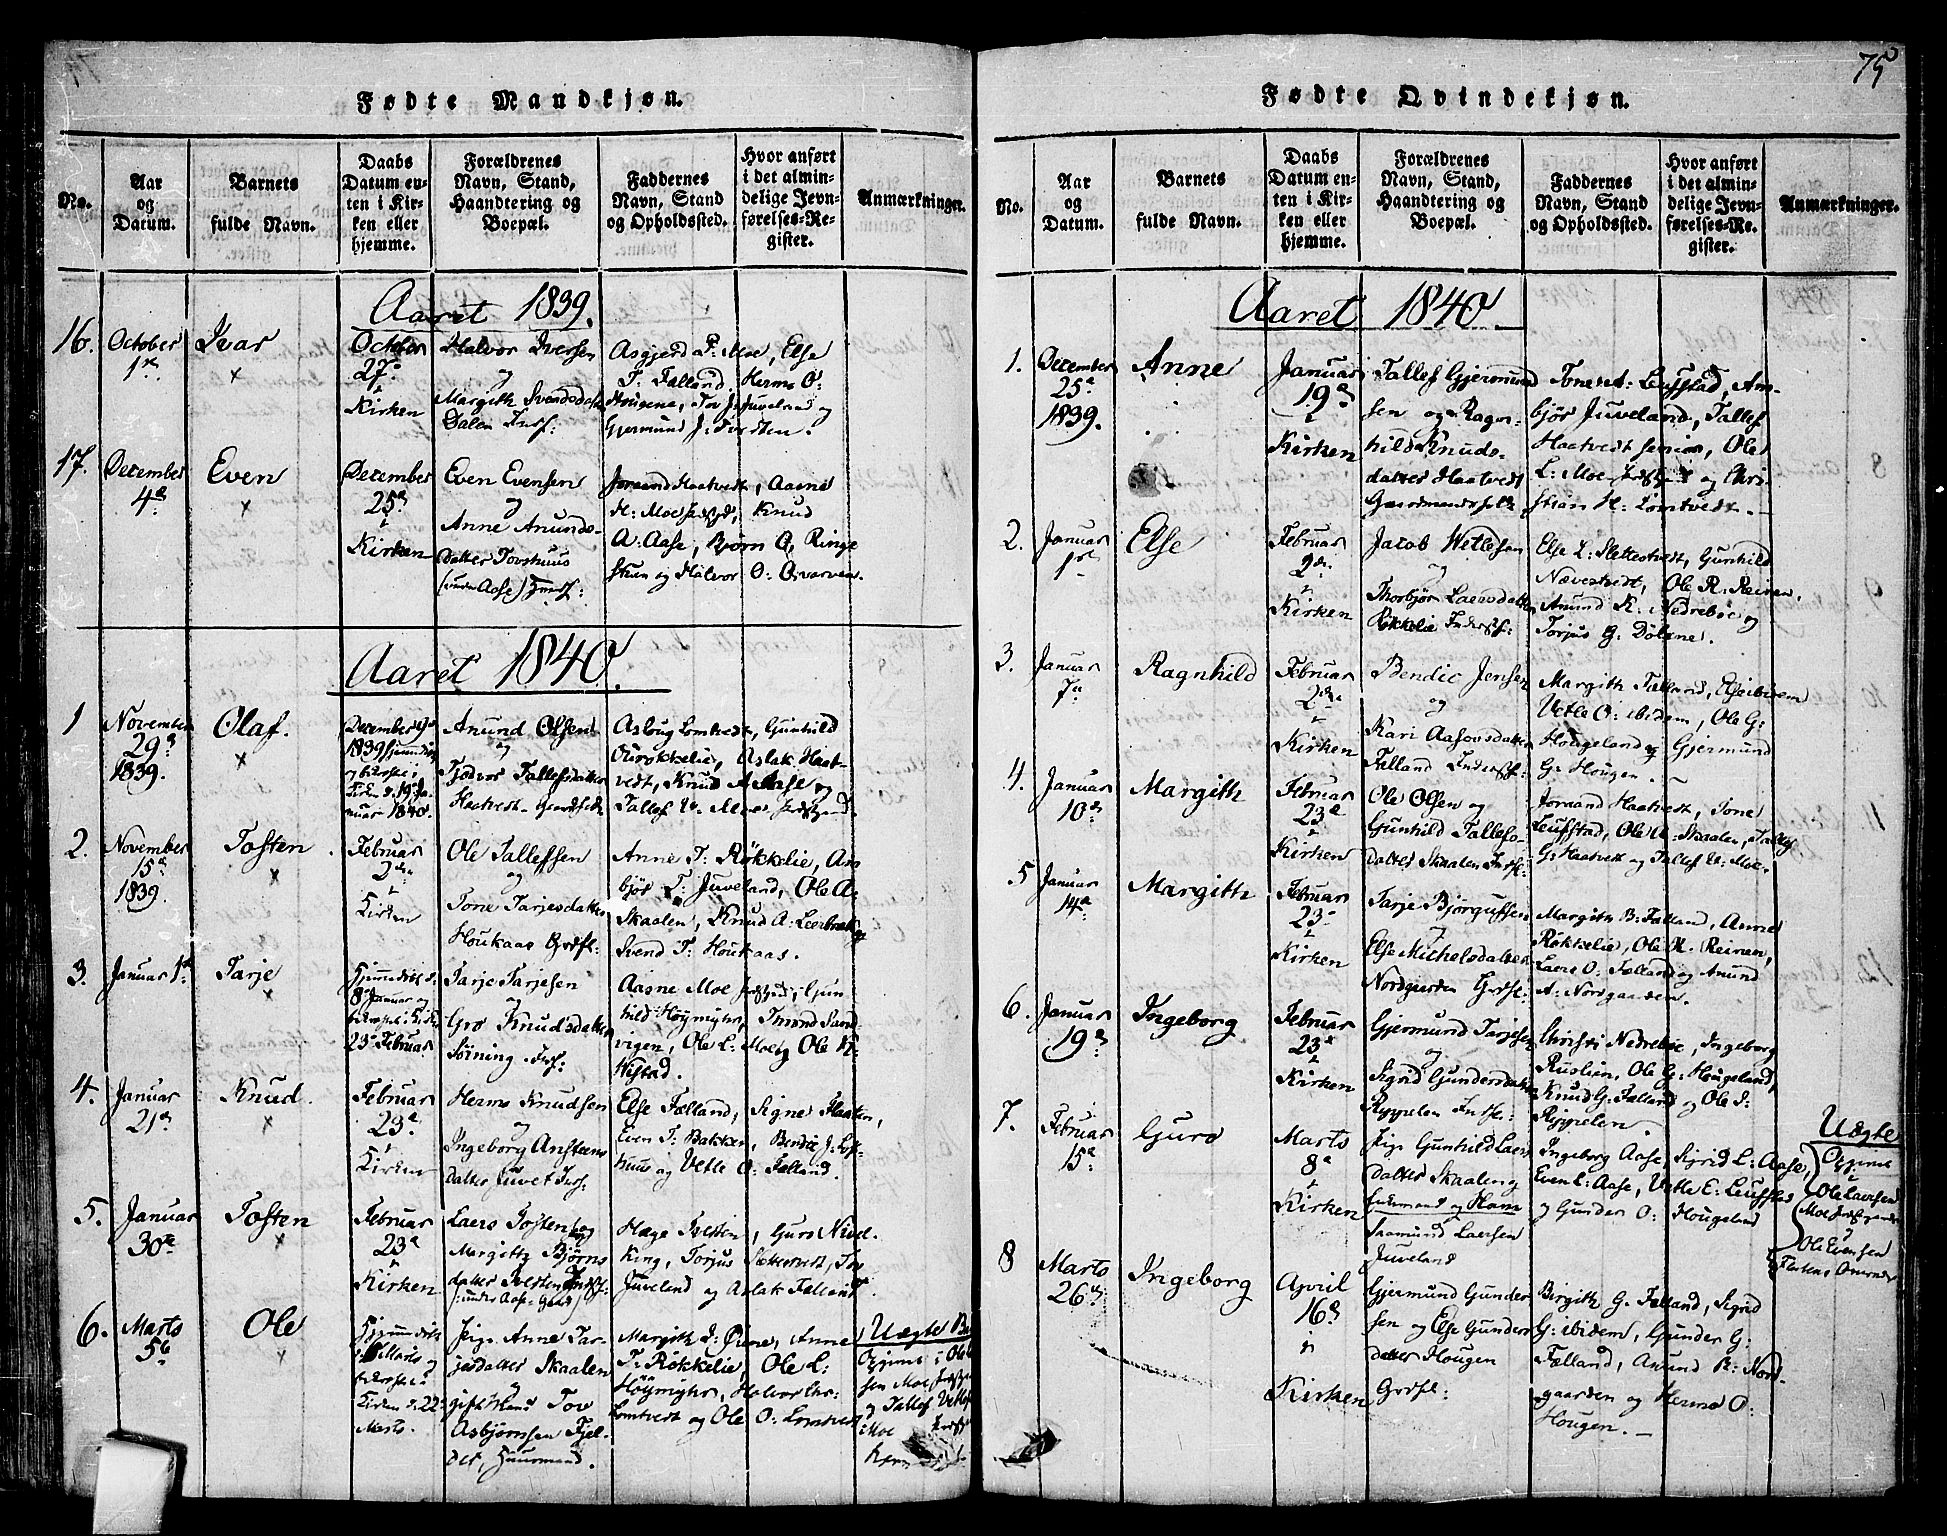 75
Fødte Mandkjøn.
No.
Aar
og
Datum.
Barnets
fulde Navn.
Daabs
Datum en-
ten i Kir-
ken eller
hjemme.
Forældrenes
Navn, Stand,
Haandtering og
Boepæl.
Faddernes
Navn, Stand
og Opholdssted.
Hvor anført
i det almin-
delige Jevn-
førelses-Re-
gister.
Anmærkninger.
Aaret 1839.
16.
October
1ste
Ivar
×
October
27de
i
Kirken
Halvor Iversen
og
Margith Svendsdatter
Dalen Indf:
Asgjerd P: Moe, Else
T: Fælland. Herms O:
Hougene, Tov J: Juveland og
Gjermund J: Tvedten.
17.
December
4de
Even
×
December
25de
i
Kirken
Even Evensen
og
Anne Anunds-
datter Tovshuus
(under Aase)
Joraand Haatvedt, Aasne
H: Moe, Knud
A: Aase, Bjørn O. Ringe
og Halvor O: Qvarven.
Aaret 1840.
1
November
29de
1839.
Olaf.
×
December
1839 hjemmedøbt
og
Kirken d. 19de Ja-
nuar 1840.
Anund Olsen
og
Tjodvor Tallefsdatter
Haatvedt
Asloug Lomtvedt, Gunhild
Røkkelie, Aslak Haat-
vedt, Knud A: Aase og
Tallef V: Moe
2.
November
15de
1839.
Tosten
×
Februar
2den
i
Kirken
Ole Tallefsen
og
Tone Tarjesdatter
Houkaas Grdfl:
Anne T: Røkkelie, As-
bjør T: Juveland, Ole A:
Skaalen, Knud A:
Svend T: Houkaas.
3.
Januar 1ste
Tarje
×
8de Januar og
23de Februar
Tarje Tarjesen
og
Gro Knudsdatter
Sørning
Aasne Moe, Gun-
hild Høymyhr, Sand-
vigen, Ole L: Moe og Ole K:
Wistad.
4.
Januar
21de
Knud.
×
Februar
23de
i
Kirken
Herms Knudsen
og
Ingeborg Anstens-
datter Juvet
Else Fælland, Signe Haaten,
Even T: Bakken, Bendic J:
og Vetle O: Fælland.
5.
Januar
30te
Tosten
×
Februar
23de
i
Kirken
Laers Tostensen og
Margith Bjørns-
datter Tvedten
(under Aase Gaard)
Hæge Tvedten, Guro
Torjus Slettestvedt, Tov
Juveland og Aslak Fælland.
6.
Marts
5te
Ole
×
Marts og
Kirken d. 22
Marts.
Pige Anne Tar-
jesdatter Skaalen
og
gift Mand Tov
Asbjørnsen Fjel-
det, Huusmand.
Margith J: Anne
T: Røkkelie, Ole L:
Høymyhr, Halvor
Lomtvedt og Ole O: Lomtvedt
Uægte
Ole
sen Moe
og Tallef
Moe
Fødte Qvindekjøn.
No.
Aar
og
Datum.
Barnets
fulde Navn.
Daabs
Datum en-
ten i Kir-
ken eller
hjemme.
Forældrenes
Navn, Stand,
Haandtering og
Boepæl.
Faddernes
Navn, Stand
og Opholdssted.
Hvor anført
i det almin-
delige Jevn-
førelses-Re-
gister.
Anmærkninger.
Aaret 1840.
1.
December
25de
1839.
Anne
Januar
19de
i
Kirken
Tallef Gjermund-
sen og Ragn-
hild Knuds-
datter Haatvedt
Gaardmandsfolk
Tone A: Leufstad, As-
bjør Juveland, Tallef
Haatvedt senior, Ole
L: Moe og Chri-
stian H: Lomtvedt.
2.
Januar
1ste
Else
Februar
2den
i
Kirken
Jacob Wetlesen
og
Thorbjør Laersdatter
Røkkelie Inderstf:
Else L: Slettestvedt, Gunhild
Nævestvedt, Ole R: Reinen,
Anund R: Nedrebøe og
Torjus G: Dølene.
3.
Januar
7de
Ragnhild
Februar
2den
i
Kirken
Bendic Jensen
og
Kari Aasovsdatter
Fælland Inderstf:
Margith Fælland, Else ibidem
Vetle O: ibidem, Ole G:
Hougeland og Gjermund
G: Hougen.
4.
Januar
10de
Margith
Februar
23de
i
Kirken
Ole Olsen og
Gunhild Tallefs-
datter Skaalen
Joraand Haatvedt, Tone
Leufstad, Ole A: Skaalen, Tallef
G: Haatvedt og Tallef V: Moe.
5
Januar
14de
Margith
Februar
23de
i
Kirken
Tarje Bjørgufsen
og
Else Michelsdatter
Nordgarden Grdfl:
Margith B: Fælland, Anne
Røkkelie, Ole R: Reinen,
Laers O: Fælland og Anund
A: Nordgaarden.
6.
Januar
19de
Ingeborg
Februar
23de
i
Kirken
Gjermund Tarjesen
og
Sigrid Gundersdatter
Rippelen
Christi Nedrebøe, Ingeborg
Ruslien, Ole G: Hougeland,
Knud G: Fælland og Ole J:
Rippelen.
7.
Februar
15de
Guro
Marts
8de
i
Kirken
Pige Gunhild Laers-
datter Skaalen og
Saamund Laersen
Juveland
Ingeborg Aase, Sigrid L: Aase,
Even L: Aase, Vetle E: Leufstad
og Gunder O: Hougeland
Uægte
Ole Laersen
Moe
og
Ole Evensen
8
Marts
26de
Ingeborg
April
16de
i
Kirken
Gjermund Gunder-
sen og Else Gunders-
datter Hougen
Grdfl:
Birgith G. Fælland, Sigrid
G: ibidem, Gunder G:
Fælland, Anund R: Nord-
gaarden og Herms O:
Hougen.